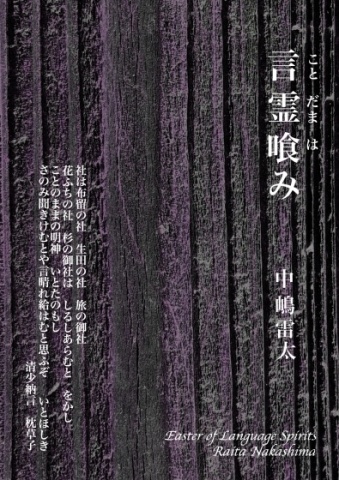 こと だま は
言霊喰み
中嶋雷太
社は布留の社 生田の社 旅の御社
花ふちの社 杉の御社は しるしあらむと をかし
ことのままの明神 いとたのもし
さのみ聞きけむとや言晴れ給はむと思ふぞ いとほしき
清少納言 枕草子
Easter of Language Spirits
Raita Nakashima